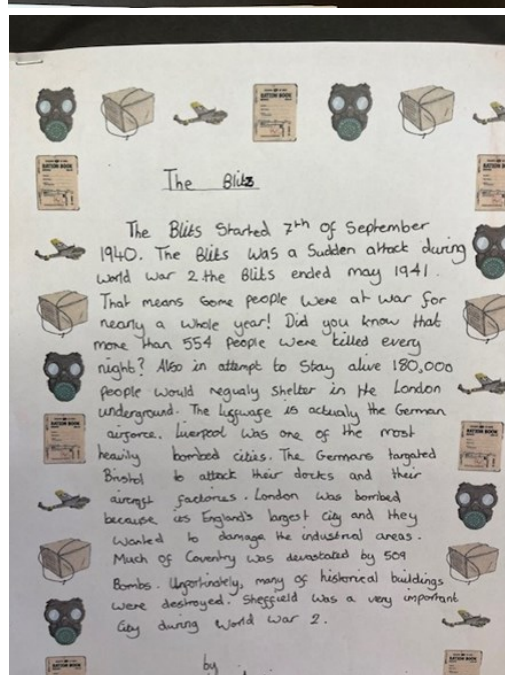 The Blitz
The Blits Started 7th of September
1940. The Blits was a Sudden attack during
World War 2. the Blits ended may 1941.
That means some people were at war for
nearly a whole year! Did you know that
more than 554 people were killed every
night? Also in attempt to Stay alive 180,000
people would regualy Shelter in the London
underground. The luffwafe is actualy the German
airforce. Liverpool was one of the most
heavily bombed cities. The Germans targated
Bristol to attack their docks and their
aircraft factories. London was bombed
because its England's largest city and they
wanted to damage the industrial areas.
Much of Coventry was devastated by 509
Bombs. Unfortinately, many of historical buildings
were destroyed. Sheffield was a very important
City during World War 2.
by
RATION BOOK
RATION BOOK
RATION BOOK